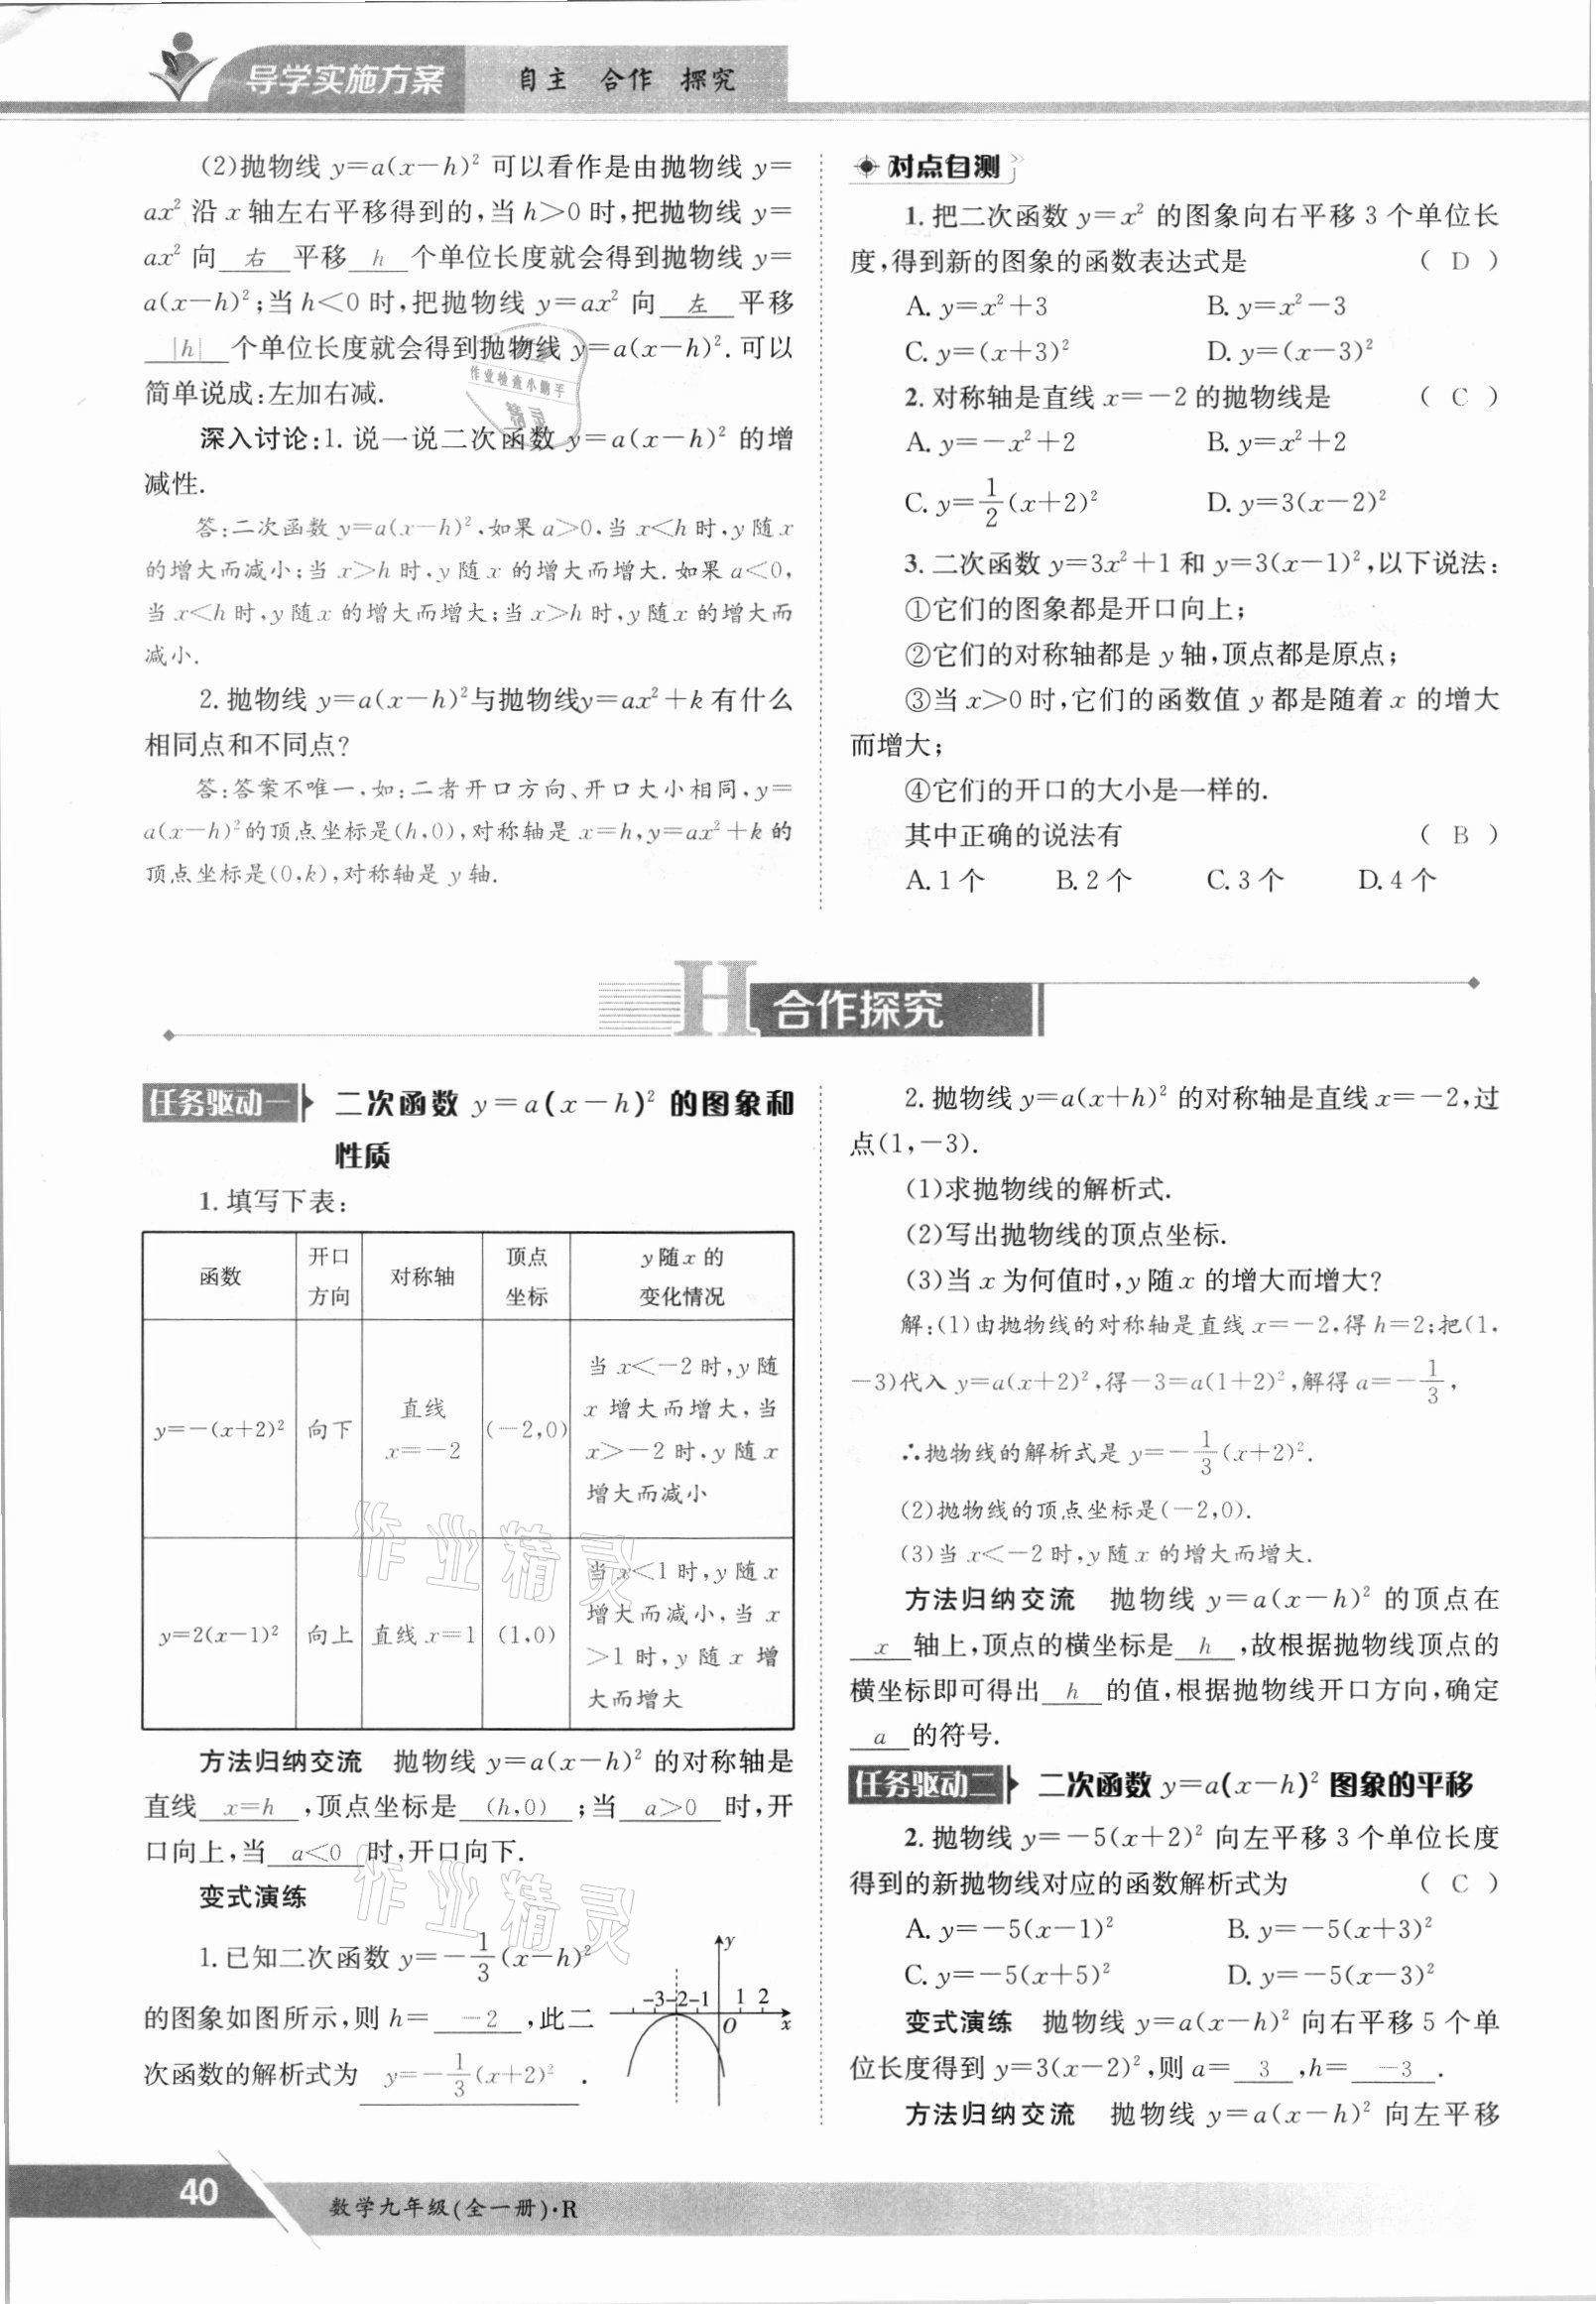 导学实施方案 自主 合作 探究
(2)抛物线 y=a(x-h)² 可以看作是由抛物线 y=
ax² 沿 x 轴左右平移得到的,当 h>0 时,把抛物线 y=
ax² 向 右 平移 h 个单位长度就会得到抛物线 y=
a(x-h)²;当 h<0 时,把抛物线 y=ax² 向 左 平移
|h| 个单位长度就会得到抛物线 y=a(x-h)².可以
简单说成:左加右减.
深入讨论:1. 说一说二次函数 y=a(x-h)² 的增
减性.
答:二次函数 y=a(x-h)²,如果 a>0,当 x<h 时,y 随 x
的增大而减小;当 x>h 时,y 随 x 的增大而增大.如果 a<0,
当 x<h 时,y 随 x 的增大而增大;当 x>h 时,y 随 x 的增大而
减小.
2. 抛物线 y=a(x-h)²与抛物线y=ax²+k 有什么
相同点和不同点?
答:答案不唯一,如:二者开口方向、开口大小相同,y=
a(x-h)²的顶点坐标是(h,0),对称轴是 x=h,y=ax²+k 的
顶点坐标是(0,k),对称轴是 y 轴.
作业检查小助手
精灵
对点自测
1. 把二次函数 y=x² 的图象向右平移 3 个单位长
度,得到新的图象的函数表达式是 ( D )
A. y=x²+3 B. y=x²-3
C. y=(x+3)² D. y=(x-3)²
2. 对称轴是直线 x=-2 的抛物线是 ( C )
A. y=-x²+2 B. y=x²+2
C. y=1/2(x+2)² D. y=3(x-2)²
3. 二次函数 y=3x²+1 和 y=3(x-1)²,以下说法:
①它们的图象都是开口向上;
②它们的对称轴都是 y 轴,顶点都是原点;
③当 x>0 时,它们的函数值 y 都是随着 x 的增大
而增大;
④它们的开口的大小是一样的.
其中正确的说法有 ( B )
A. 1 个 B. 2 个 C. 3 个 D. 4 个
H 合作探究
任务驱动一 二次函数 y=a(x-h)² 的图象和
性质
1. 填写下表:
函数 开口方向 对称轴 顶点坐标 y 随 x 的变化情况
y=-(x+2)² 向下 直线 x=-2 (-2,0) 当 x<-2 时,y 随 x 增大而增大,当 x>-2 时,y 随 x 增大而减小
y=2(x-1)² 向上 直线 x=1 (1,0) 当 x<1 时,y 随 x 增大而减小,当 x>1 时,y 随 x 增大而增大
作业精灵
方法归纳交流 抛物线 y=a(x-h)² 的对称轴是
直线 x=h ,顶点坐标是 (h,0) ;当 a>0 时,开
口向上,当 a<0 时,开口向下.
变式演练
作业精灵
1. 已知二次函数 y=-1/3(x-h)²
的图象如图所示,则 h= -2 ,此二
次函数的解析式为 y=-1/3(x+2)² .
y
-3-2-1 1 2
O x
2. 抛物线 y=a(x+h)² 的对称轴是直线 x=-2,过
点(1,-3).
(1)求抛物线的解析式.
(2)写出抛物线的顶点坐标.
(3)当 x 为何值时,y 随 x 的增大而增大?
解:(1)由抛物线的对称轴是直线 x=-2,得 h=2;把(1,
-3)代入 y=a(x+2)²,得-3=a(1+2)²,解得 a=-1/3,
∴抛物线的解析式是 y=-1/3(x+2)².
(2)抛物线的顶点坐标是(-2,0).
(3)当 x<-2 时,y 随 x 的增大而增大.
方法归纳交流 抛物线 y=a(x-h)² 的顶点在
x 轴上,顶点的横坐标是 h ,故根据抛物线顶点的
横坐标即可得出 h 的值,根据抛物线开口方向,确定
a 的符号.
任务驱动二 二次函数 y=a(x-h)² 图象的平移
2. 抛物线 y=-5(x+2)² 向左平移 3 个单位长度
得到的新抛物线对应的函数解析式为 ( C )
A. y=-5(x-1)² B. y=-5(x+3)²
C. y=-5(x+5)² D. y=-5(x-3)²
变式演练 抛物线 y=a(x-h)² 向右平移 5 个单
位长度得到 y=3(x-2)²,则 a= 3 ,h= -3 .
方法归纳交流 抛物线 y=a(x-h)² 向左平移
40 数学九年级(全一册)·R